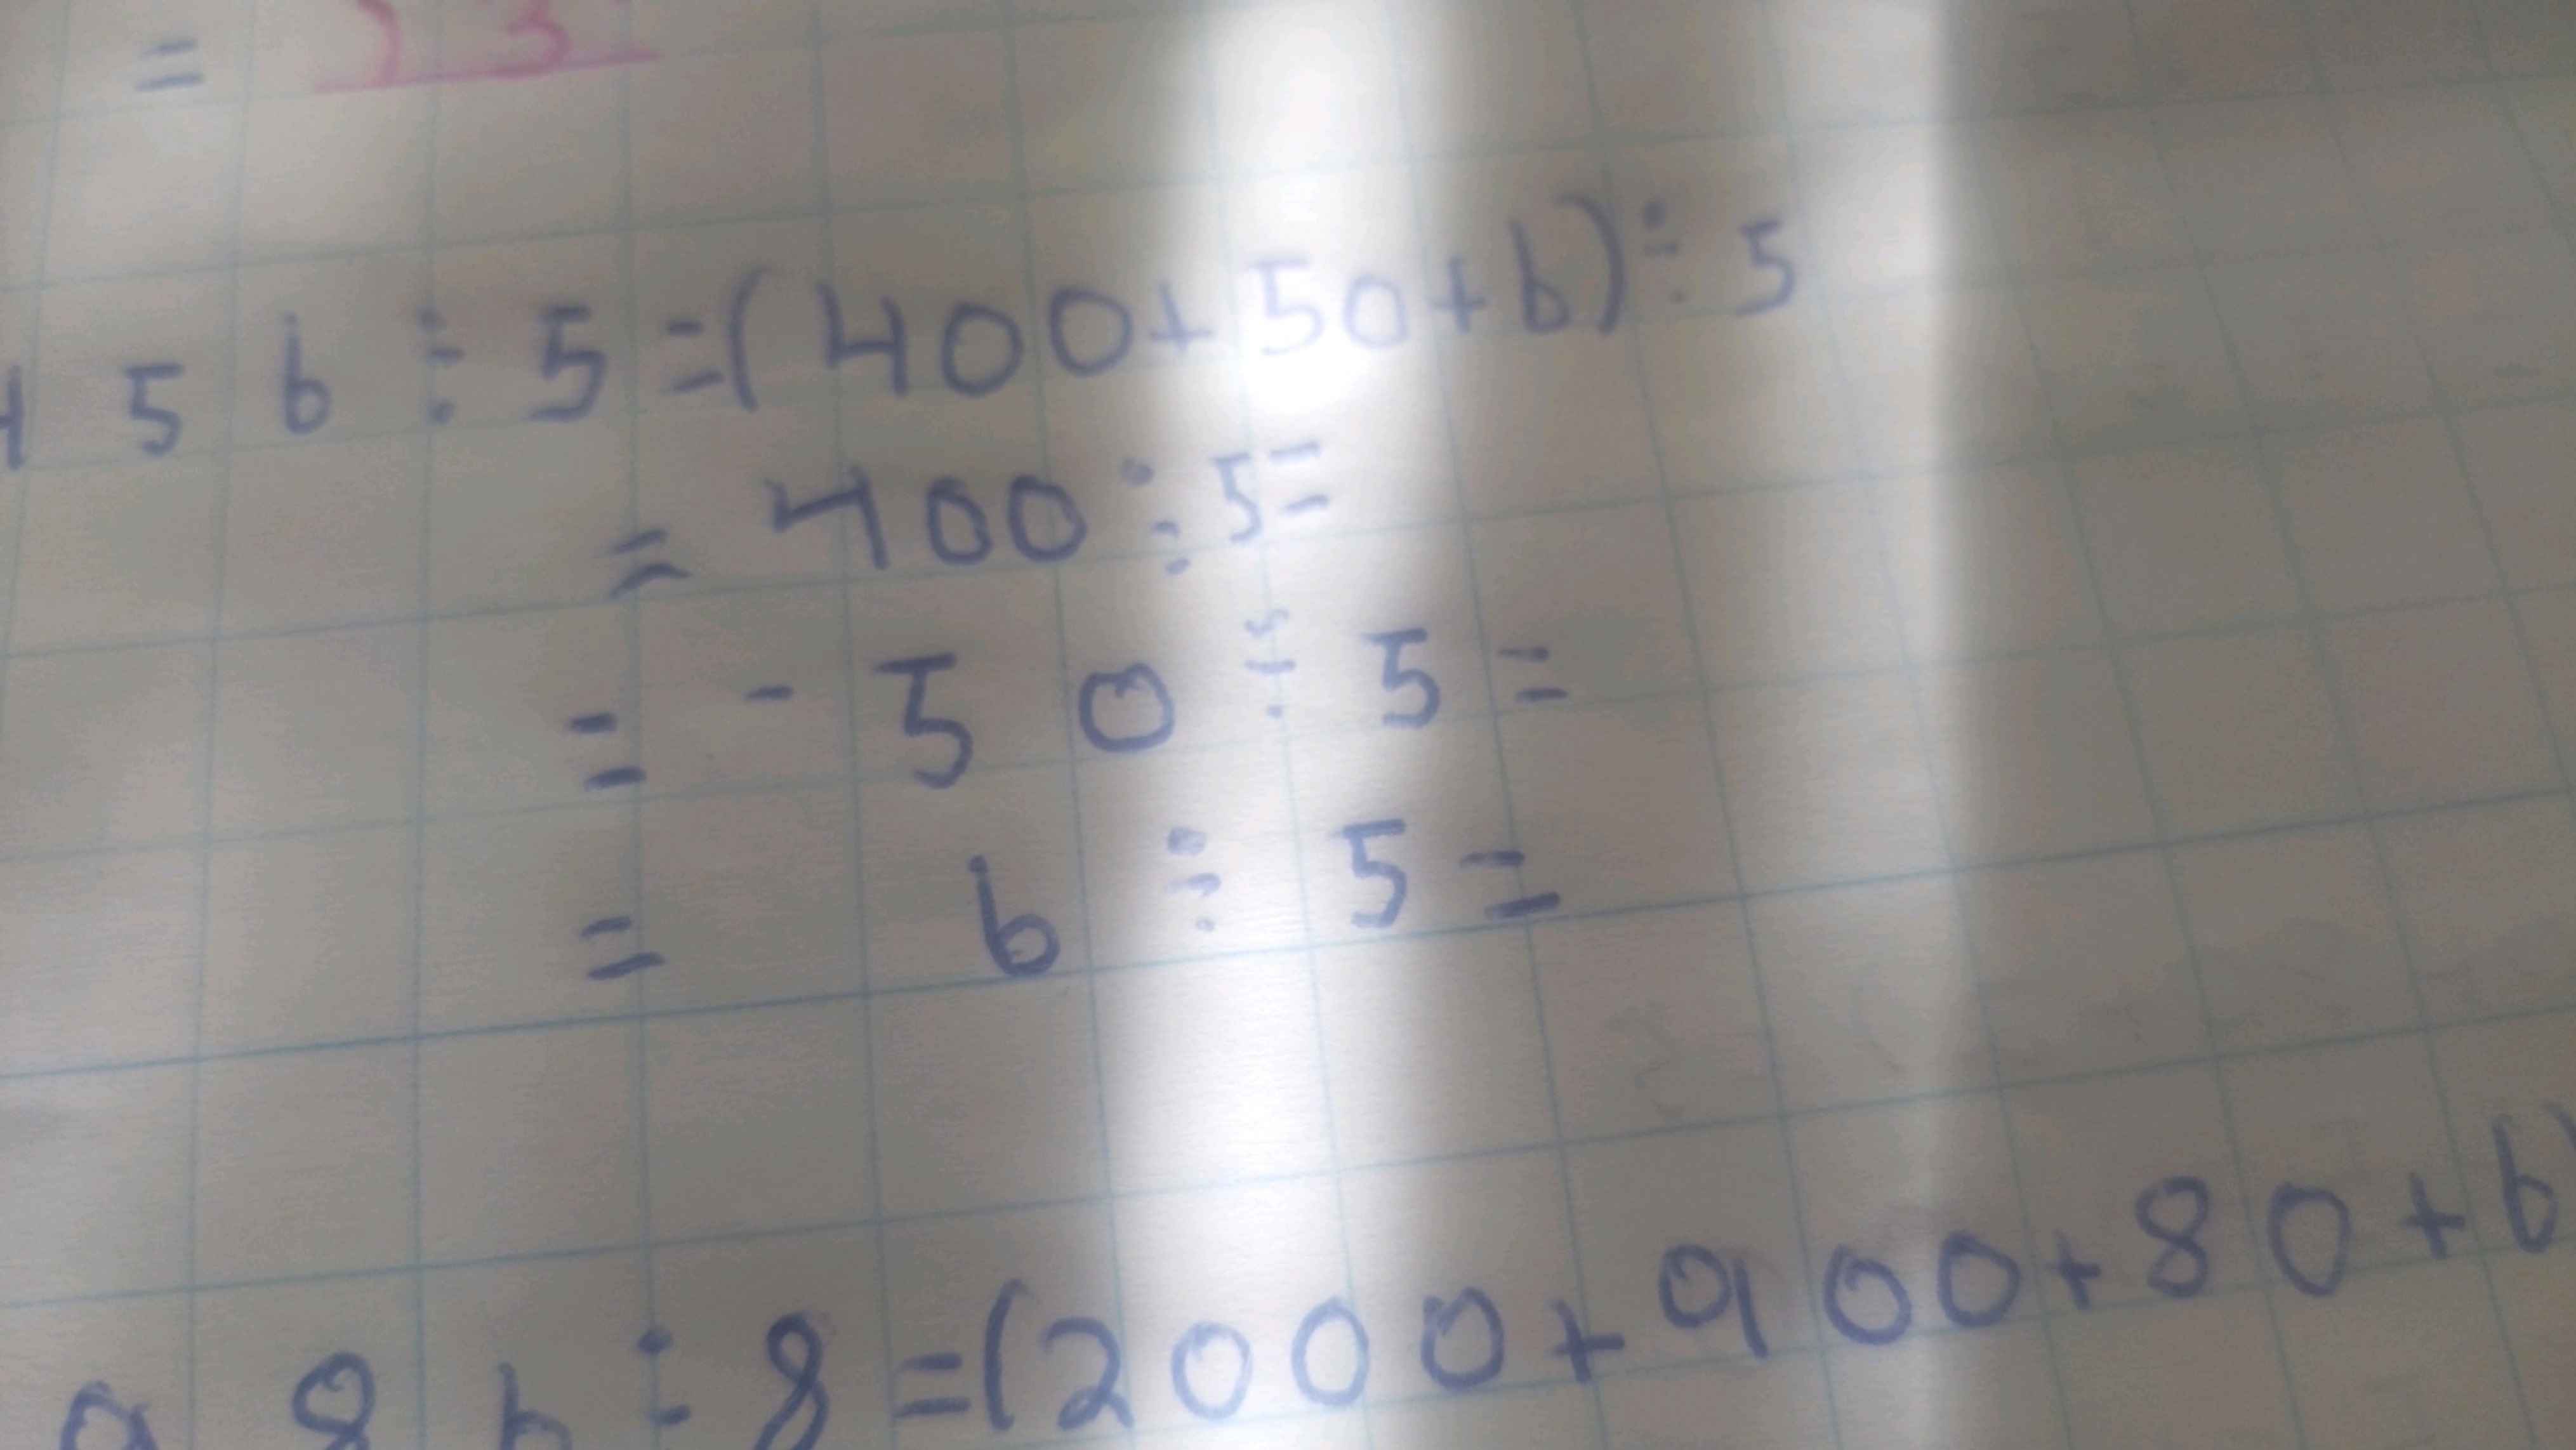 = 13
456 ÷ 5 = (400 + 50 + 6) ÷ 5
= 400 ÷ 5 =
= - 50 ÷ 5 =
= 6 ÷ 5 =
986 ÷ 8 = (2000 + 900 + 80 + 6)